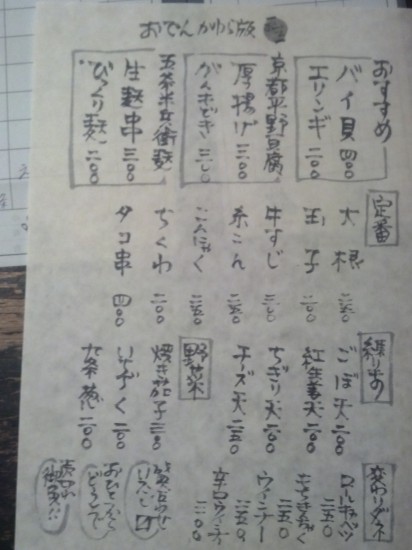 おでんかわら版
おすすめ
バイ貝 四〇〇
エリンギ 二〇〇
京都平野豆腐
厚揚げ 三〇〇
がんもどき 三〇〇
五条半兵衛麩
生麩串 三〇〇
びっくり麩 二〇〇
定番
大根 二五〇
玉子 二〇〇
牛すじ 三〇〇
糸こん 二五〇
こんにゃく 二五〇
ちくわ 二〇〇
タコ串 四〇〇
練りもの
ごぼ天 二〇〇
紅生姜天 二〇〇
ちぎり天 二〇〇
チーズ天 二五〇
野菜
焼き茄子 三〇〇
いちぢく 二〇〇
九条葱 二〇〇
変わりダネ
ロールキャベツ 三五〇
もちきんちゃく 二五〇
ウィンナー 二五〇
辛口ウィンナー 三〇〇
おひとつから
どうぞ